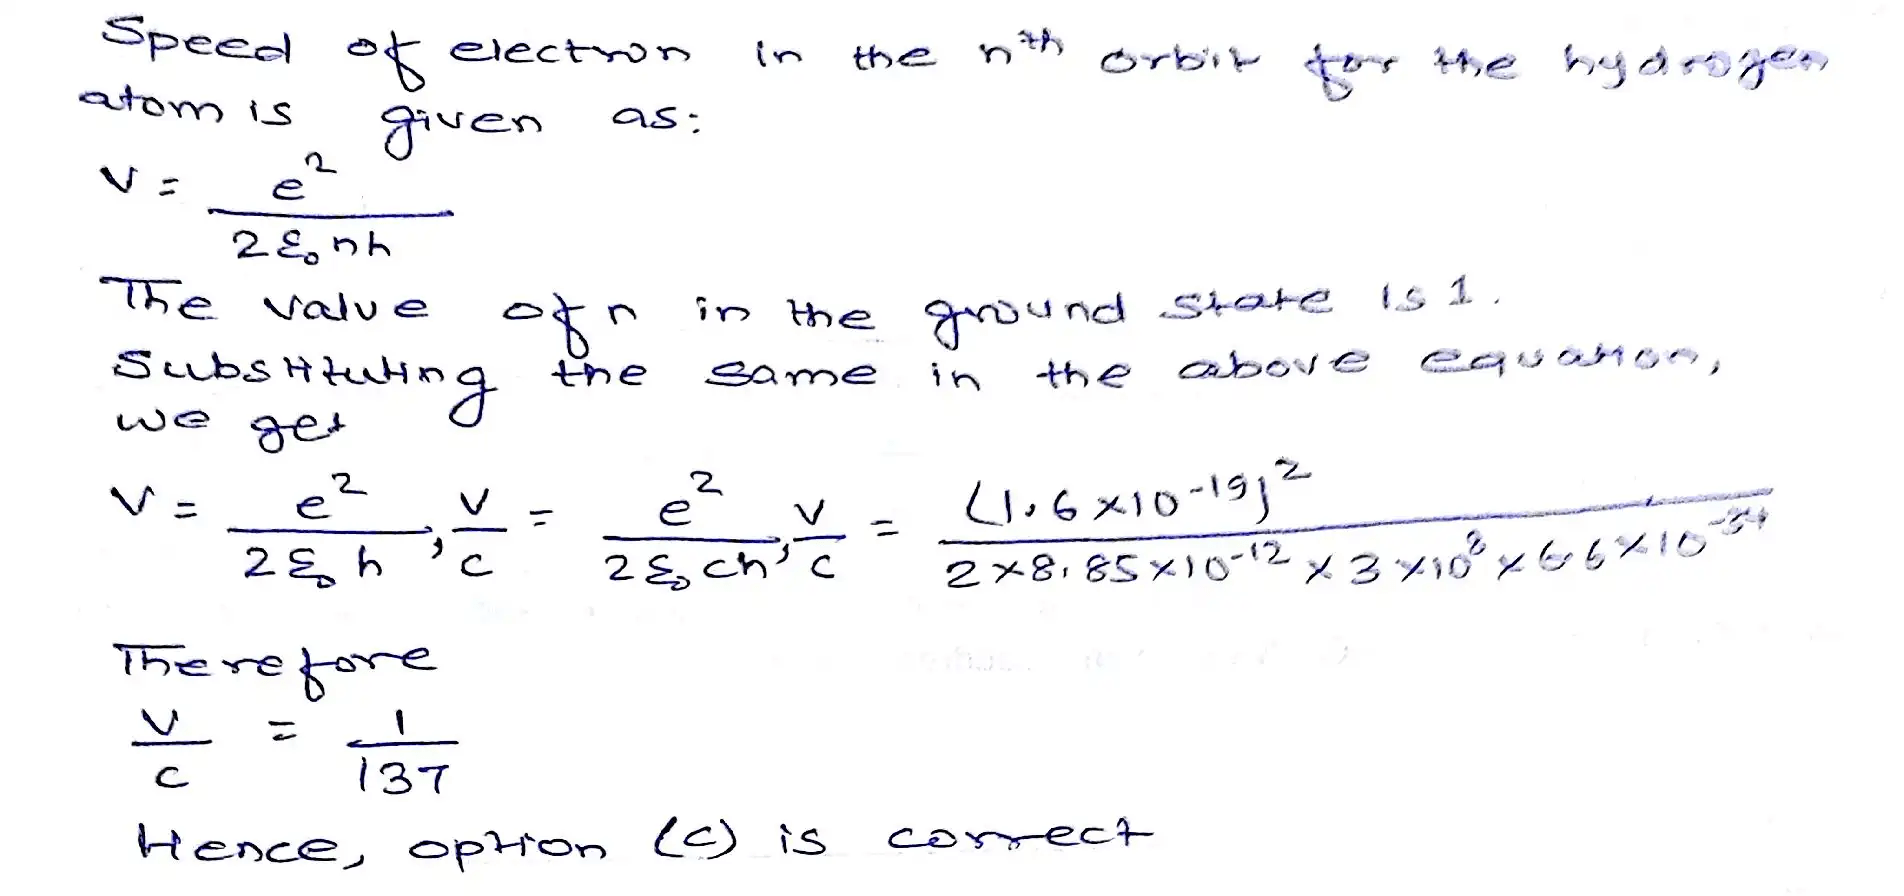 Speed of electron in the nth orbit for the hydrogen
atom is given as:
V = e² / 2ε₀nh
The value of n in the ground state is 1.
Substituting the same in the above equation,
we get
V = e² / 2ε₀h , V/c = e² / 2ε₀ch , V/c = (1.6×10⁻¹⁹)² / 2×8.85×10⁻¹² × 3×10⁸ × 6.6×10⁻³⁴
Therefore
V/c = 1/137
Hence, option (c) is correct